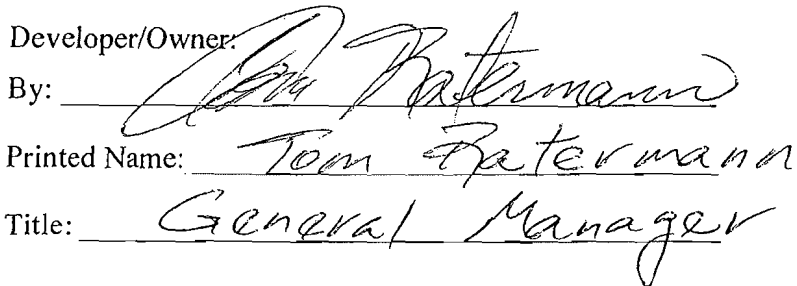 Developer/Owner:
By: Tom Ratermann
Printed Name: Tom Ratermann
Title: General Manager